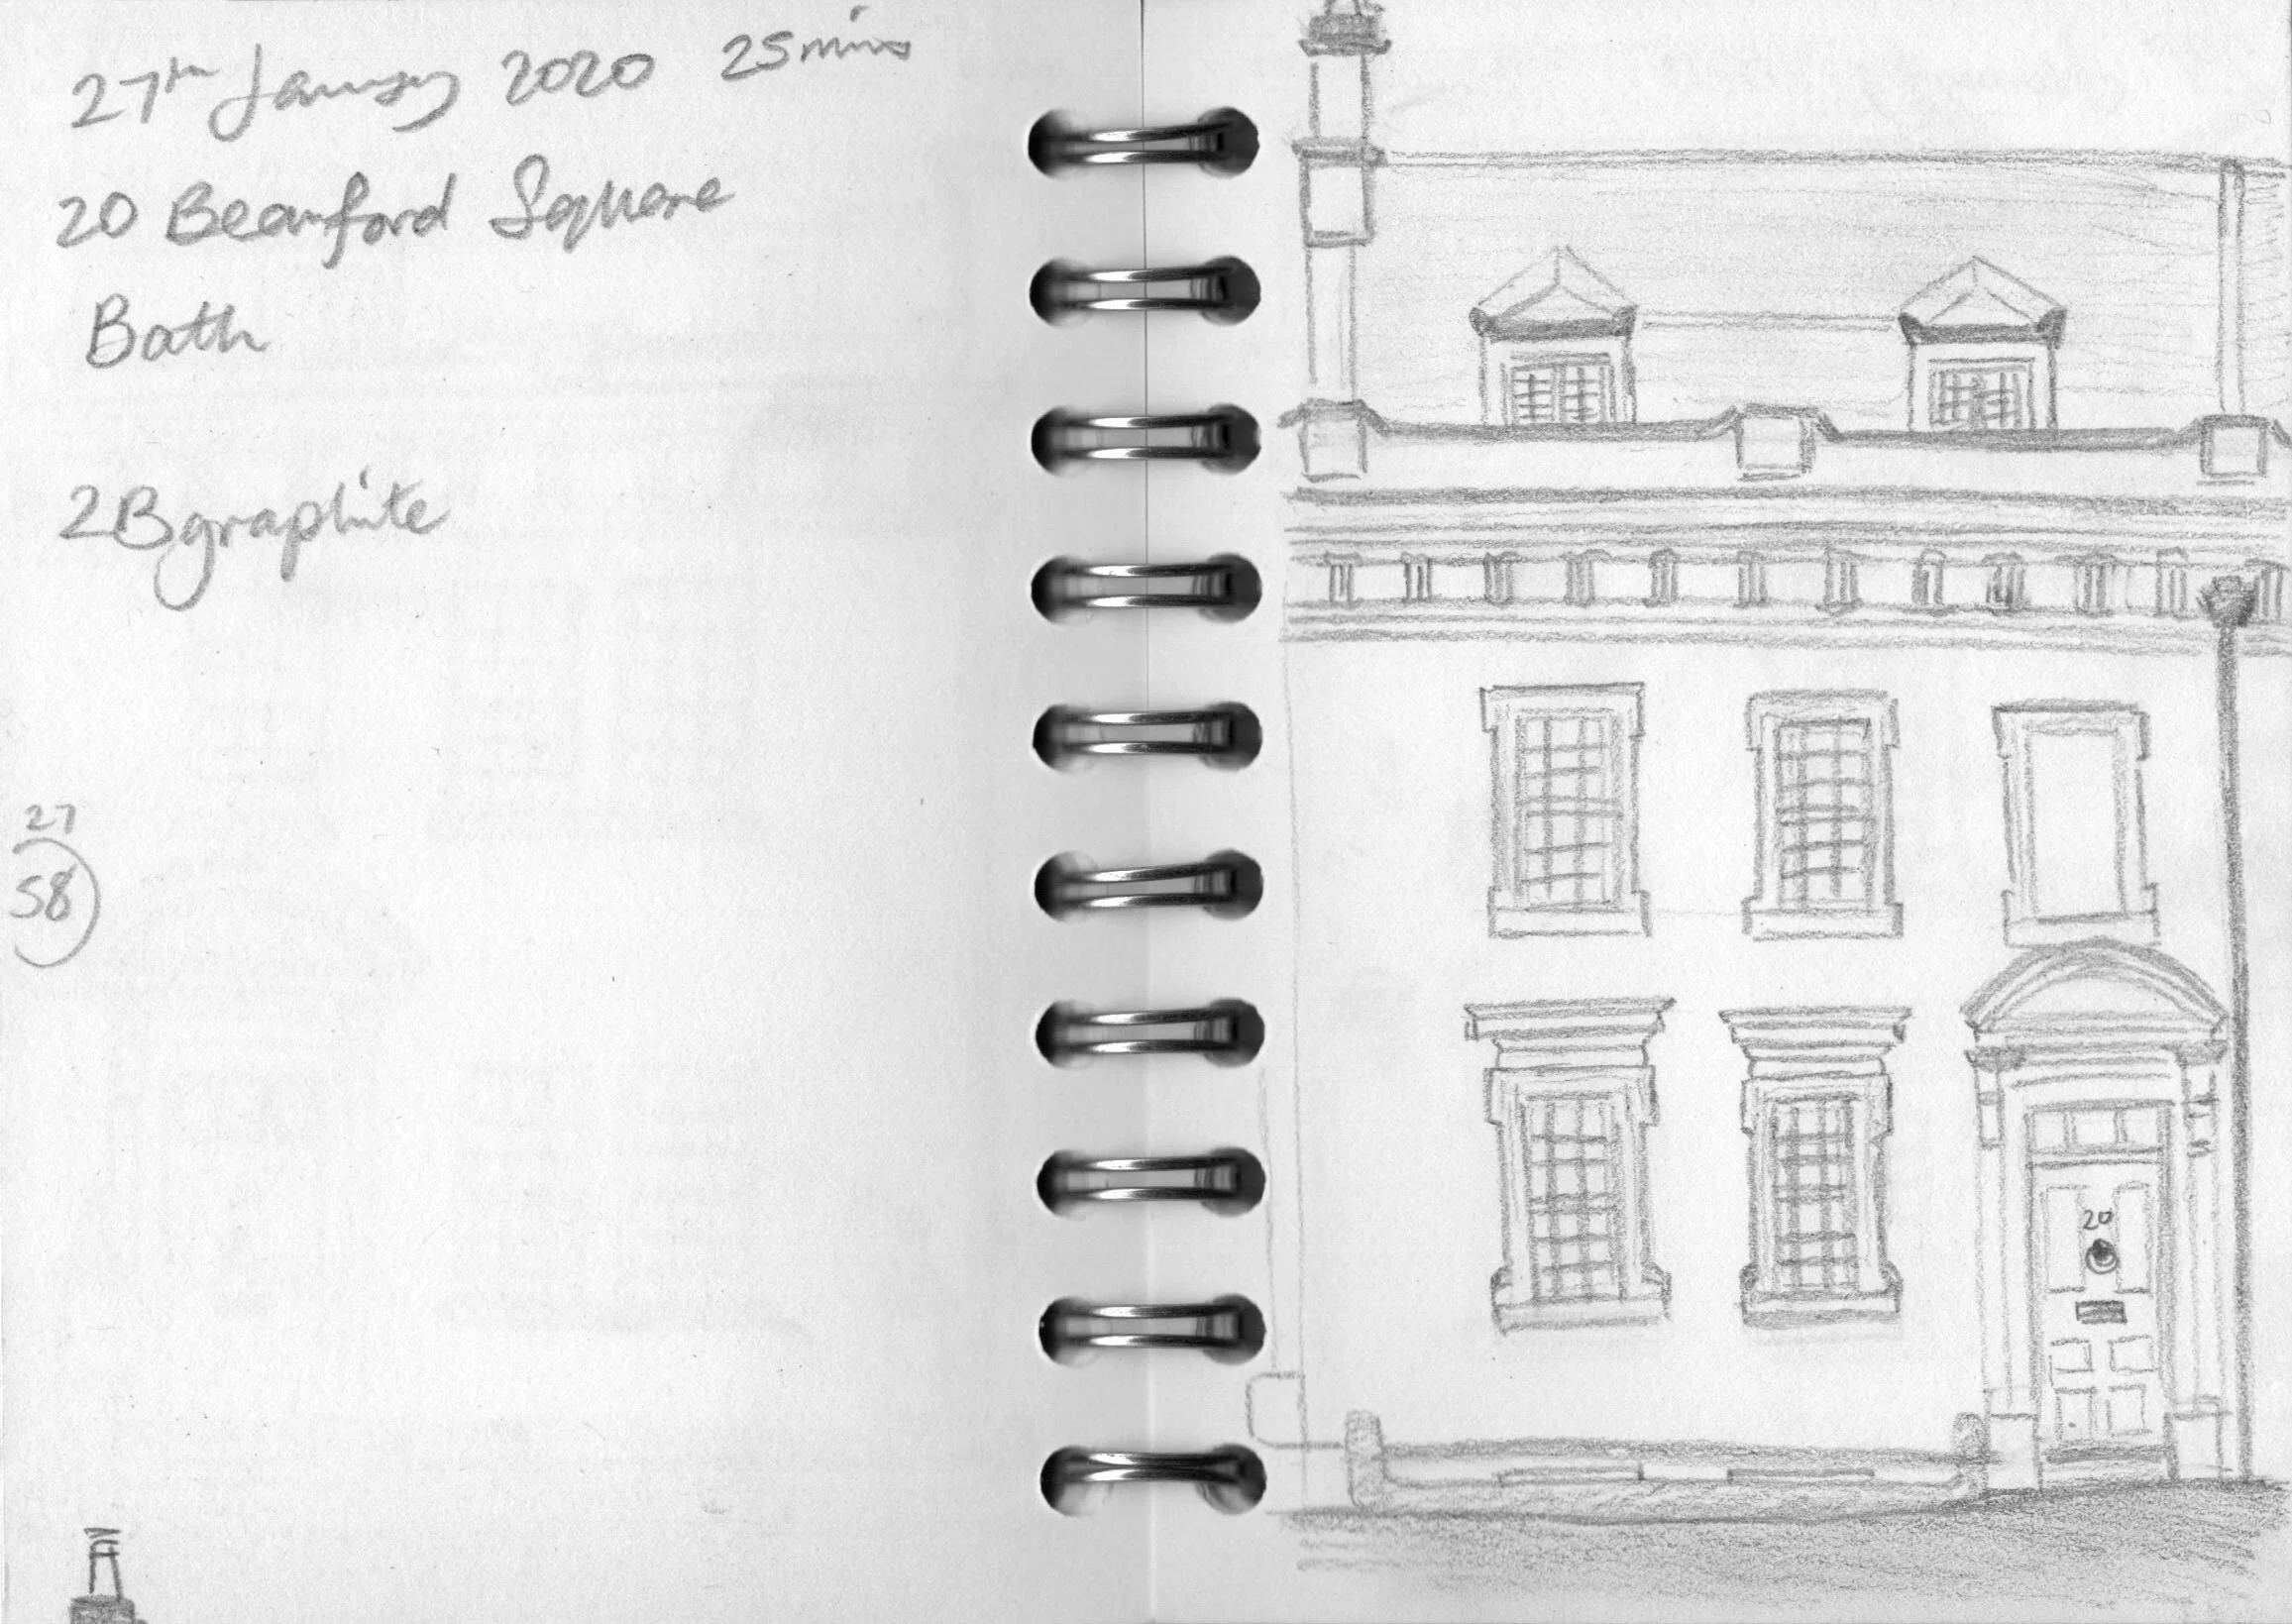 27th January 2020 25 mins
20 Beauford Square
Bath
2B graphite
27
58
20